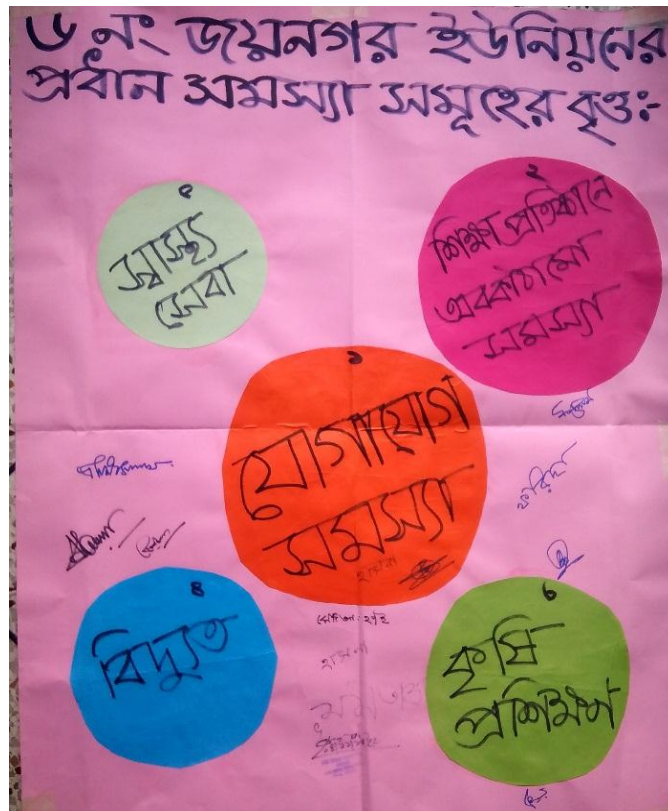 ৬ নং জয়নগর ইউনিয়নের
প্রধান সমস্যা সমূহের বৃত্ত:-
৫
স্বাস্থ্য
সেবা
২
শিক্ষা প্রতিষ্ঠানে
অবকাঠামো
সমস্যা
১
যোগাযোগ
সমস্যা
ফরিদা
হাসনা
৪
বিদ্যুত
হাসনা
মমতাজ
৩
কৃষি
প্রশিক্ষণ